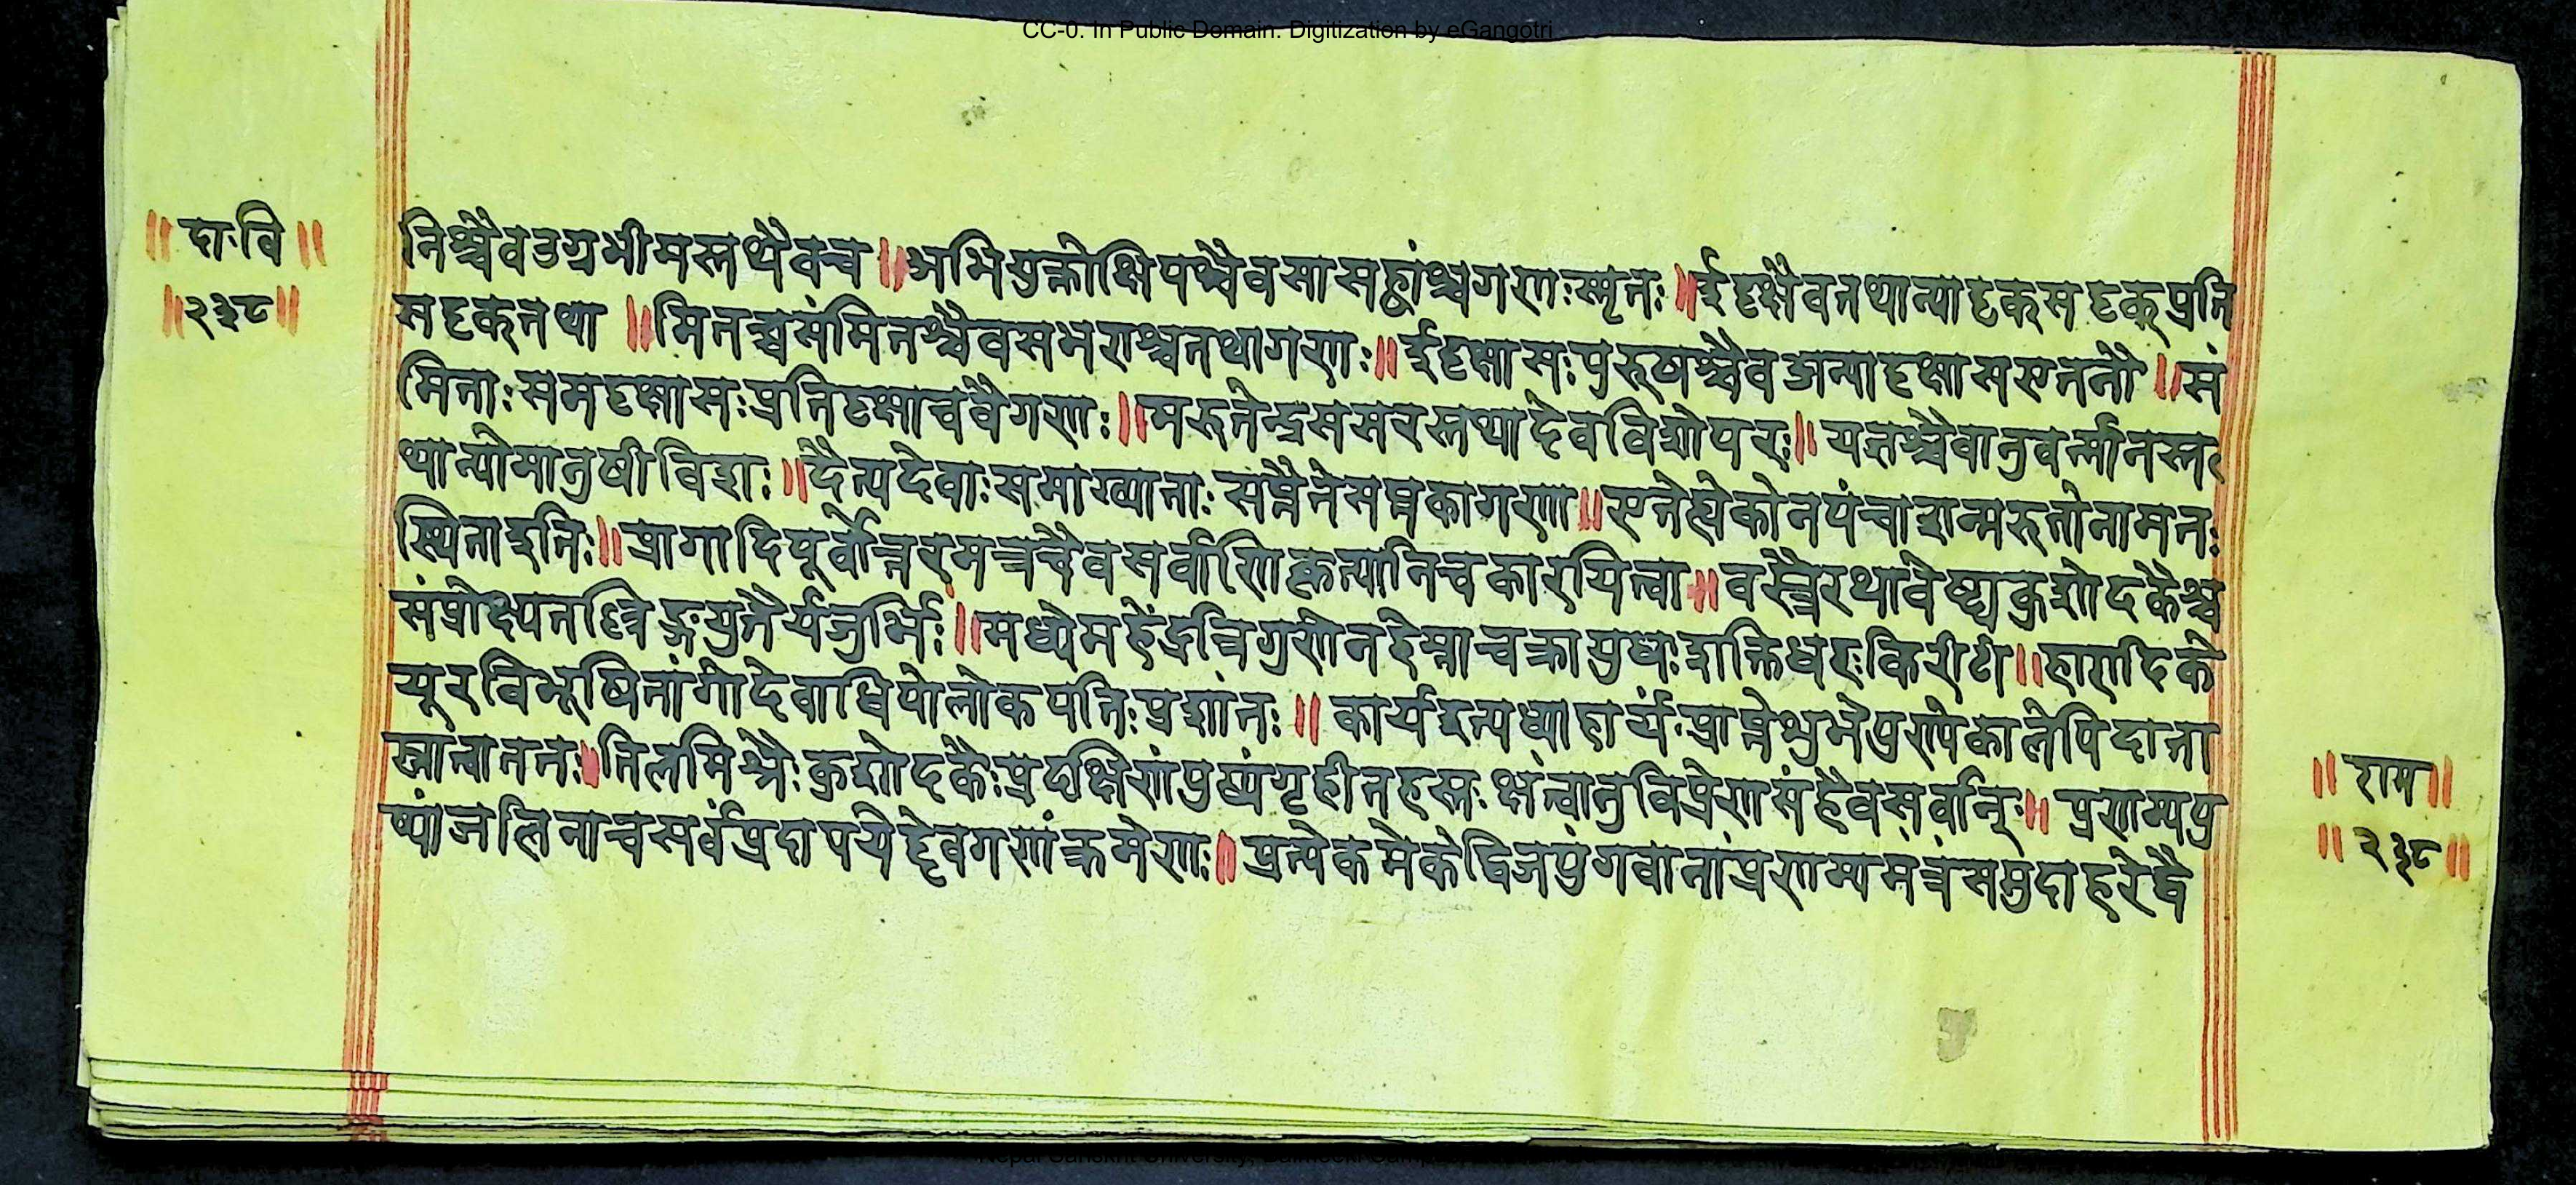 CC-0. In Public Domain. Digitization by eGangotri
॥ दा·वि ॥
॥२३८॥
तिश्चैवउग्रभीमस्तथैवच ॥ अभियुक्तोक्षिपश्चैवसासह्वांश्चगणःस्मृतः ॥ ईदृक्षैवतथान्यादृकसदृक्प्रति
सदृकतथा ॥ मितश्चसंमितश्चैवसभराश्चतथागणः ॥ ईदृक्षासःपुरुषाश्चैवअन्यादृक्षाससएततौ ॥ सं
मिताःसमदृक्षासःप्रतिदृक्षाचवैगणः ॥ मरुतेन्द्रससरस्तथादेवविशोपरः ॥ यत्तश्चैवानुवर्त्मानस्त
थान्योमानुषीविशः ॥ दैत्यदेवाःसमाख्याताःसप्तैतेसप्तकागणा ॥ एतेह्येकोनपंचाशन्मरुतोनामतः
स्थिताइतिः ॥ प्रागादिपूर्वोत्तरमत्रचैवसर्वाणिकृत्यानिचकारयित्वा ॥ वस्त्रैरथावेष्ट्यकुशोदकैश्च
संप्रोक्ष्यतण्त्रिङ्गयुतैर्यजुर्भिः ॥ मध्येमहेंद्रत्रिगुणेनहेम्नाचक्रायुधःशक्तिधरःकिरीटी ॥ हारादिके
यूरविभूषितांगोदेवाधिपोलोकपतिःप्रशांतः ॥ कार्यइत्यध्याहार्यः प्राप्तेशुभेपुण्यकालेपिदाता
स्नांत्वाततः॥ तिलमिश्रैःकुशोदकैःप्रदक्षिणंपुष्पंगृहीतहस्तः क्षंत्वातुविप्रेणसंहैवसर्वान्ः ॥ प्रणम्यपु
ष्पांजलिनाचसर्वंप्रदापयेद्देवगणंक्रमेणः ॥ प्रत्येकमेकेद्विजपुंगवानांप्रणम्यमंत्रंसमुदाहरेद्वै
॥ राम ॥
॥ २३८ ॥